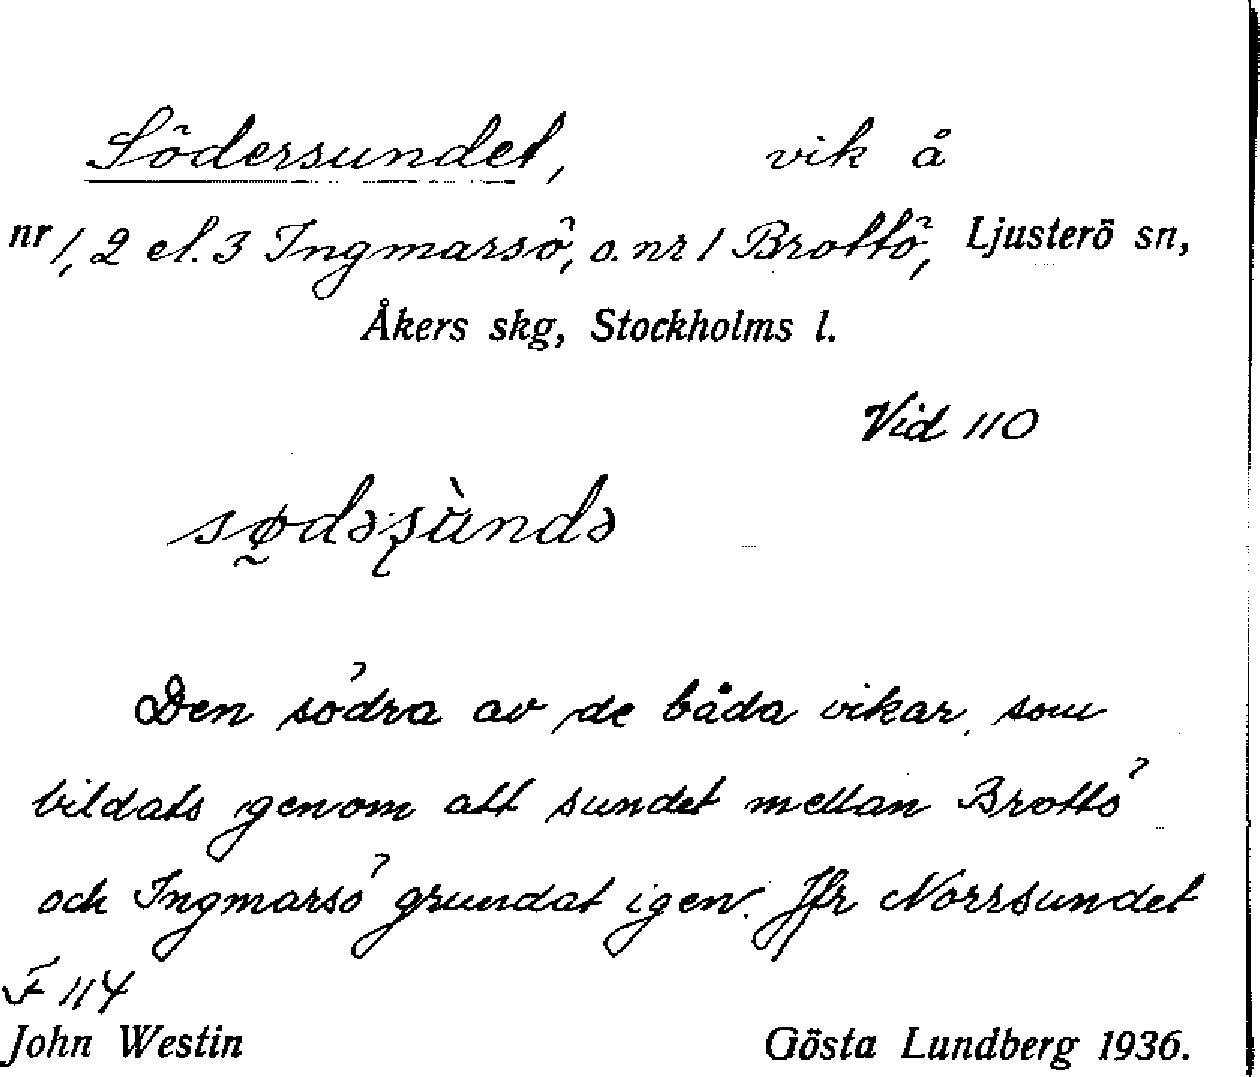 Södersundet, vik å
nr 1, 2 el. 3 Ingmarsö, o. nr 1 Brottö, Ljusterö sn,
Åkers skg, Stockholms l.
Vid 110
sø̰dəʂùndə
Den södra av de båda vikar, som
bildats genom att sundet mellan Brottö
och Ingmarsö grundat igen. Jfr Norrsundet
F 114
John Westin Gösta Lundberg 1936.